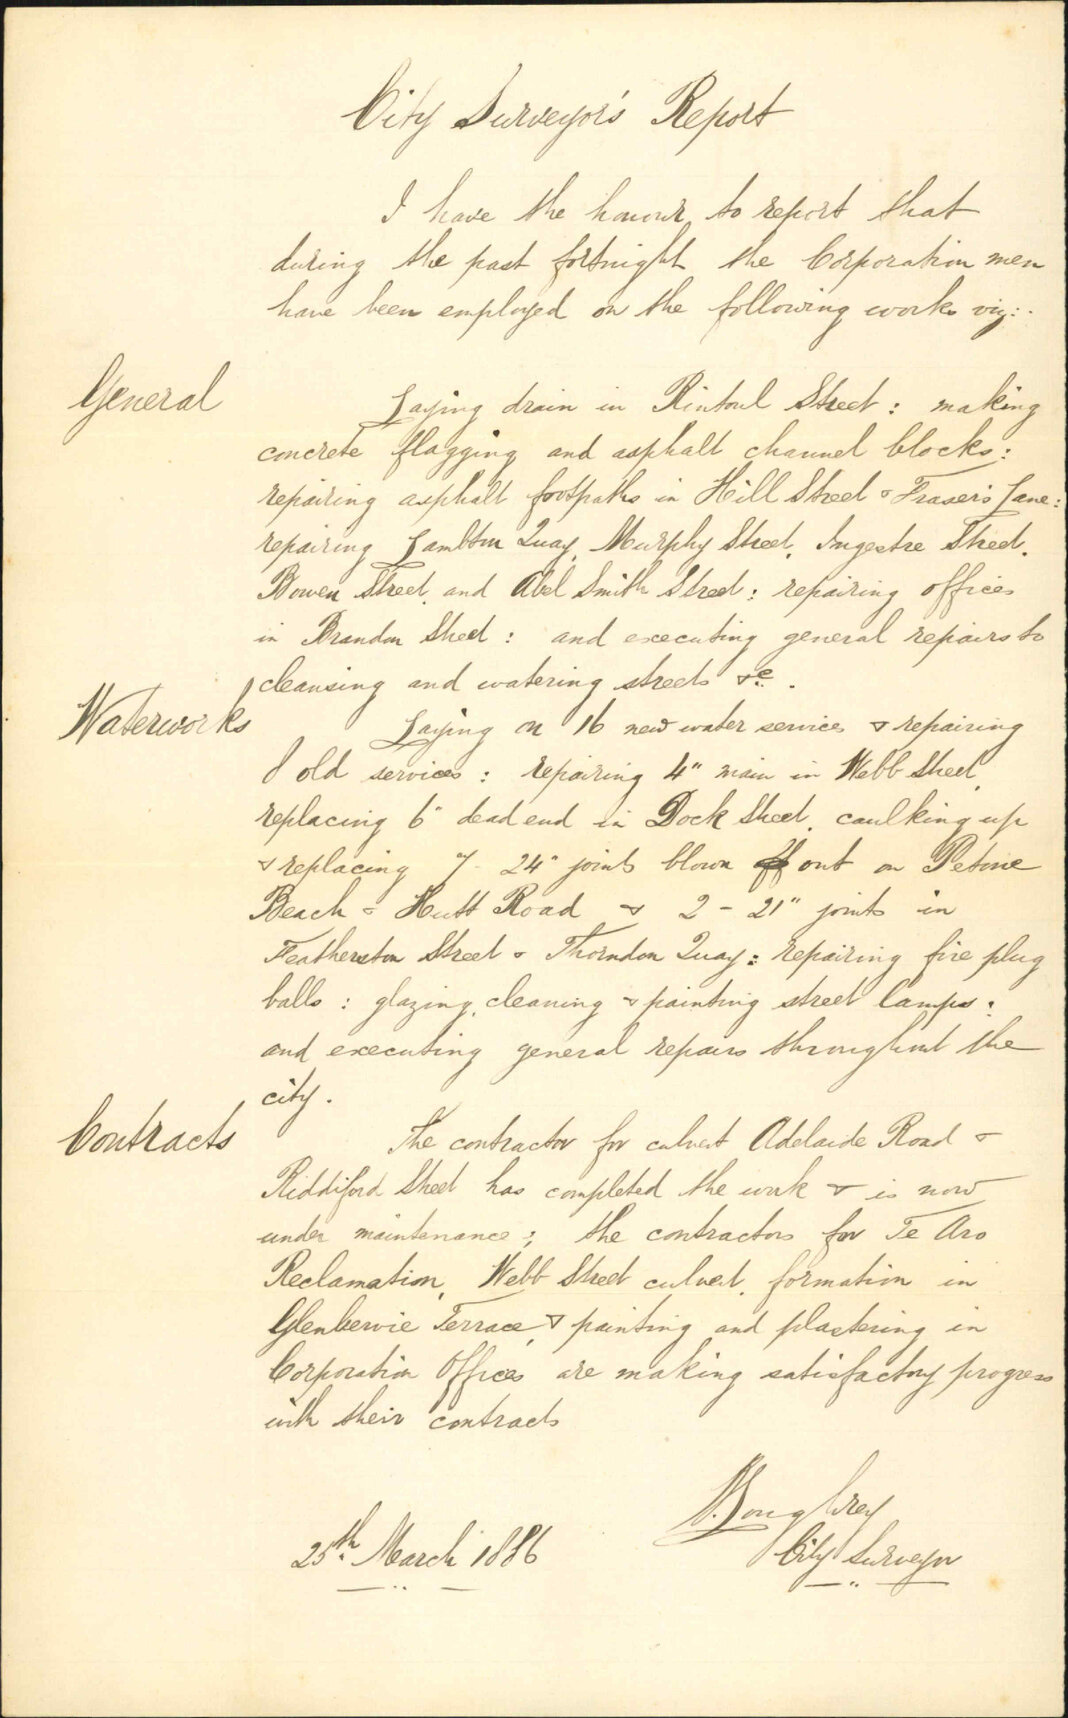 City Surveyor's Report
I have the honour to report that
during the past fortnight the Corporation men
have been employed on the following works viz:-
General
Laying drain in Rintoul Street: making
concrete flagging and asphalt channel blocks:
repairing asphalt footpaths in Hill Street & Fraser's Lane:
repairing Lambton Quay, Murphy Street, Ingestre Street,
Bowen Street, and Abel Smith Street: repairing offices
in Brandon Street: and executing general repairs to
cleansing and watering streets &c.
Waterworks
Laying on 16 new water services & repairing
old services: repairing 4" main in Webb Street,
replacing 6" dead end in Dock Street, caulking up
& replacing 7 - 24" joints blown out on Petone
Beach & Hutt Road & 2 - 21" joints in
Featherston Street & Thorndon Quay: repairing fire plug
balls: glazing, cleaning & painting street lamps:
and executing general repairs throughout the
city.
Contracts
The contractor for culvert Adelaide Road &
Riddiford Street has completed the work & is now
under maintenance; the contractors for Te Aro
Reclamation, Webb Street culvert, formation in
Glenbervie Terrace, & painting and plastering in
Corporation Offices are making satisfactory progress
with their contracts
Loughrey
City Surveyor
25th March 1886